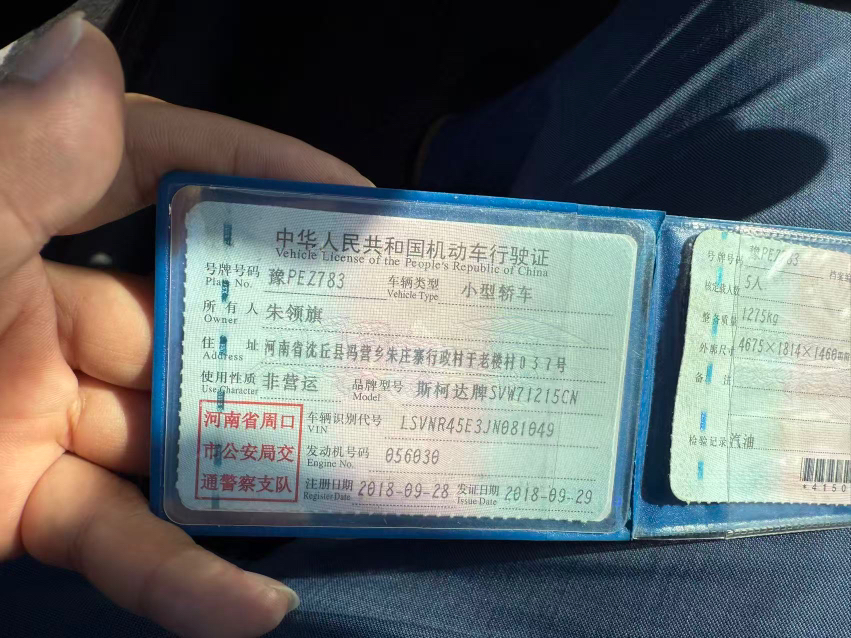 中华人民共和国机动车行驶证
Vehicle License of the People's Republic of China
号牌号码 豫PEZ783 车辆类型 小型轿车
Plate No. Vehicle Type
所有人 朱领旗
Owner
住址 河南省沈丘县冯营乡朱庄寨行政村于老楼村037号
Address
使用性质 非营运 品牌型号 斯柯达牌SVW71215CN
Use Character Model
河南省周口
市公安局交
通警察支队
车辆识别代号 LSVNR45E3JN081049
VIN
发动机号码 056030
Engine No.
注册日期 2018-09-28 发证日期 2018-09-29
Register Date Issue Date
号牌号码 豫PEZ783
核定载人数 5人
整备质量 1275kg
外廓尺寸 4675×1814×1460mm
备注
检验记录 汽油